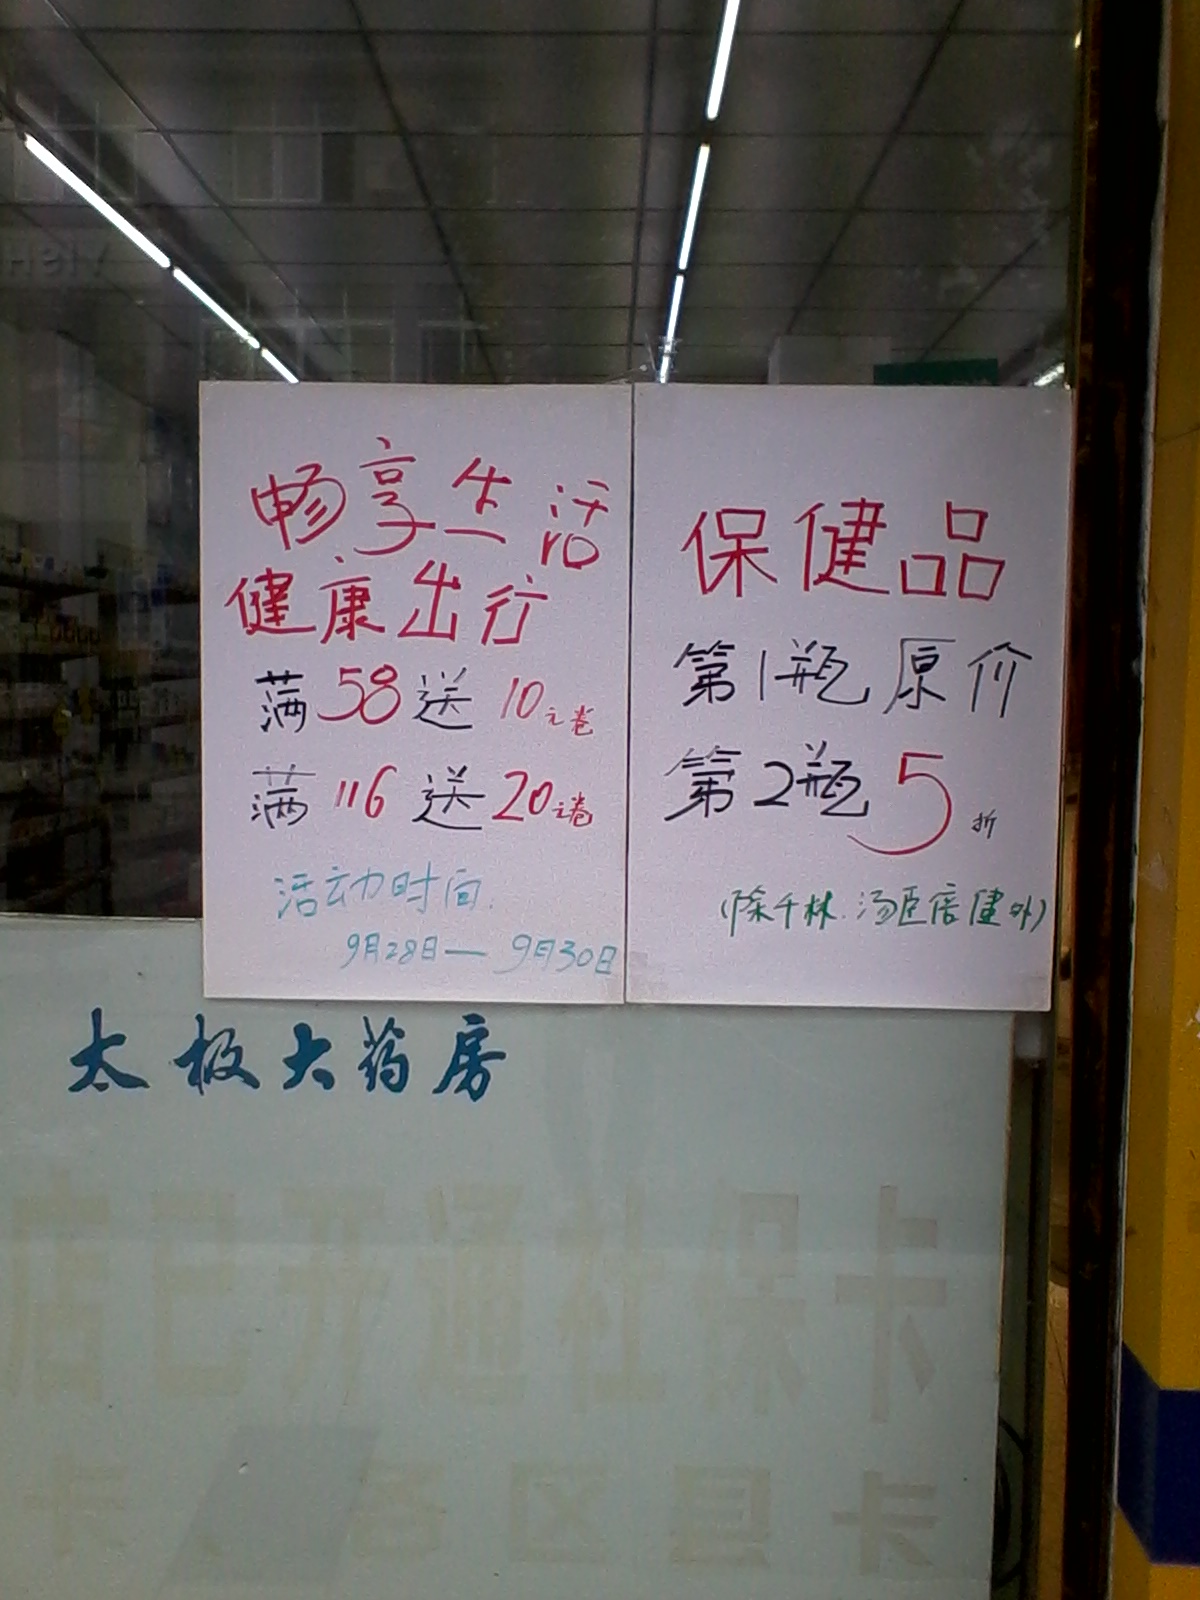 畅享生活
健康出行
满58送10元卷
满116送20元卷
活动时间.
9月28日—9月30日
保健品
第1瓶原价
第2瓶5折
(除千林.汤臣倍健外)
太极大药房
店已开通社保卡
卡、各区县卡